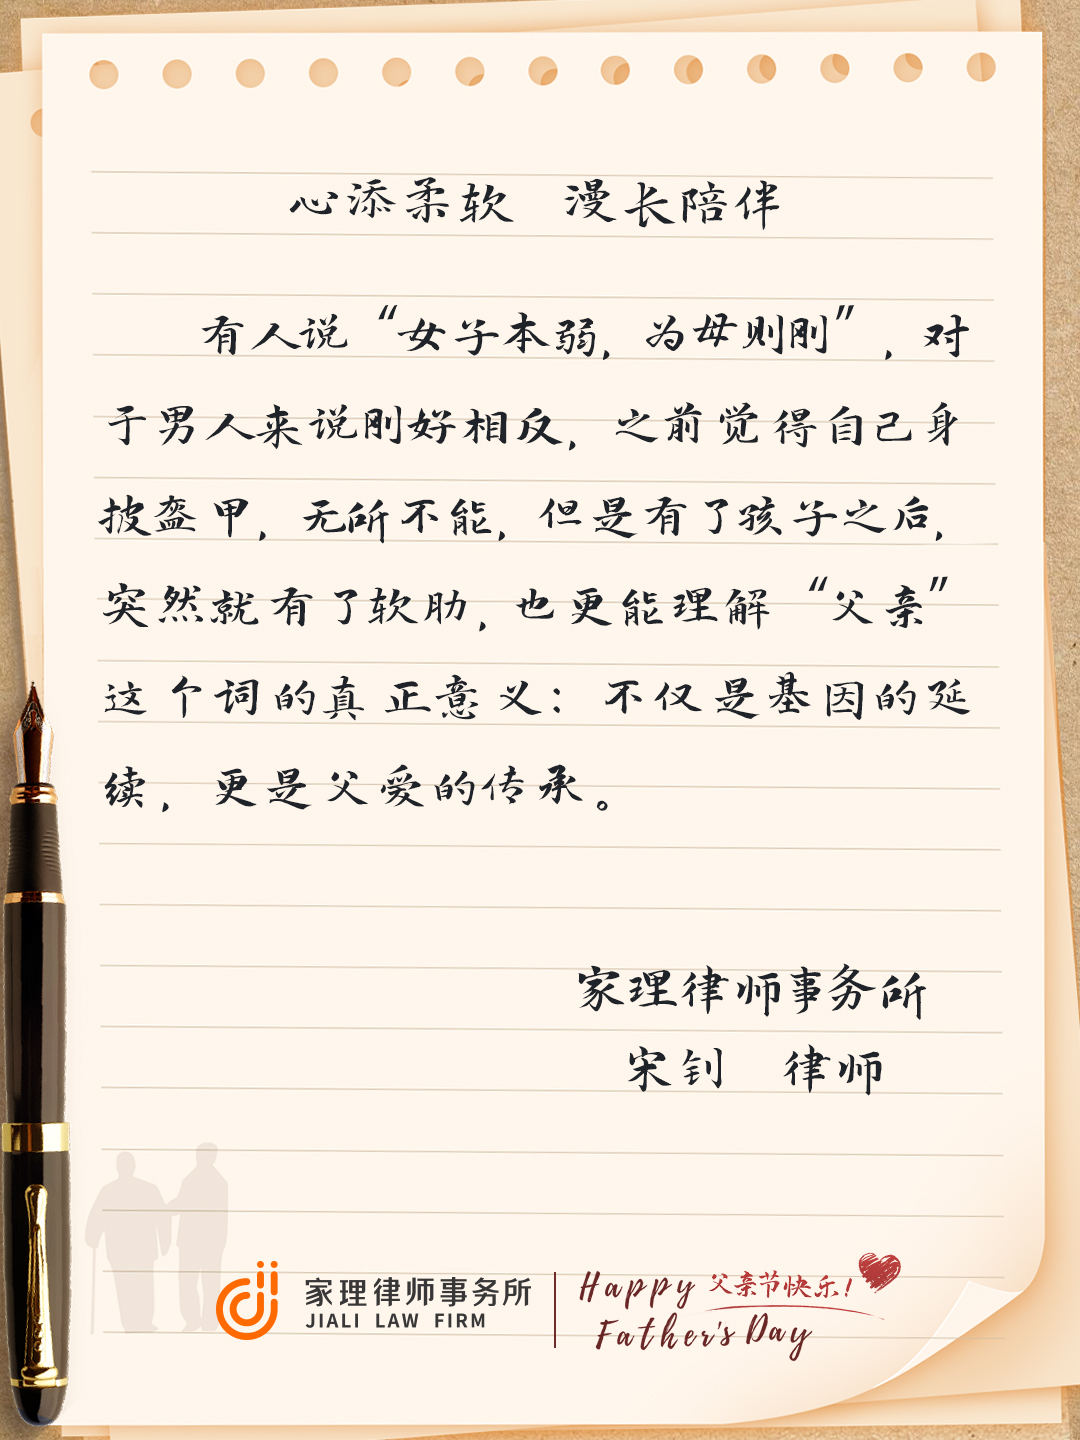 心添柔软 漫长陪伴
有人说“女子本弱，为母则刚”，对
于男人来说刚好相反，之前觉得自己身
披盔甲，无所不能，但是有了孩子之后，
突然就有了软肋，也更能理解“父亲”
这个词的真正意义：不仅是基因的延
续，更是父爱的传承。
家理律师事务所
宋钊 律师
家理律师事务所
JIALI LAW FIRM
Happy 父亲节快乐！
Father's Day